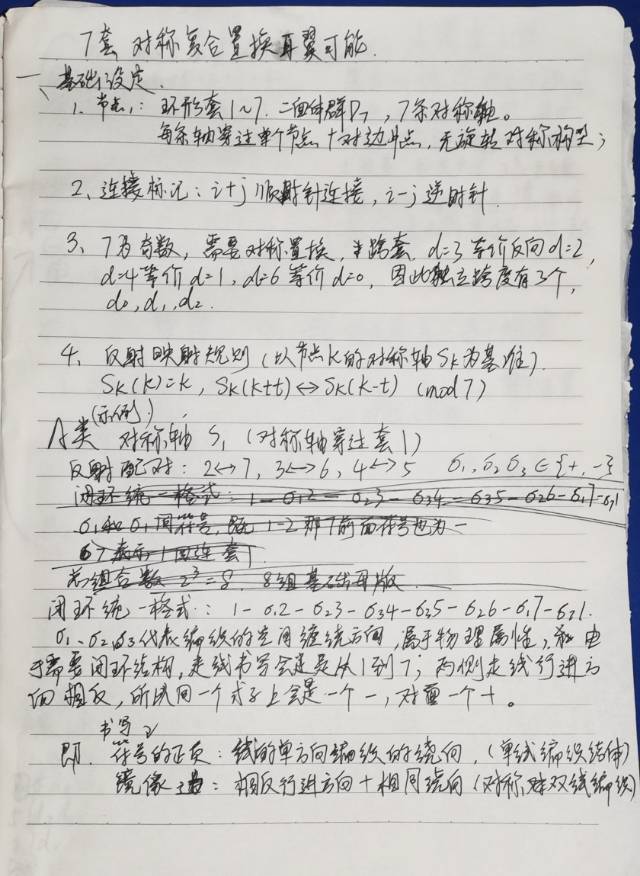 7套 对称复合置换耳翼可能.
一 基础设定.
1、节点: 环形套1~7. 二面体群D7, 7条对称轴。
每条轴穿过单个节点+对边中点, 无旋转对称构型;
2、连接标记: i+j 顺时针连接, i-j 逆时针.
3、7为奇数, 需要对称置换, 半跨套. d=3等价反向d=2,
d=4等价d=1, d=6等价d=0, 因此独立跨度有3个,
d0, d1, d2.
4、反射映射规则 (以节点K的对称轴SK为基准).
SK(K)=K, SK(K+t)↔SK(K-t) (mod 7)
(示例)
A类 对称轴 S1 (对称轴穿过套1)
反射配对: 2↔7, 3↔6, 4↔5 σ1, σ2 σ3 ∈{+,-}
闭环统一格式: 1-σ12-σ23-σ34-σ35-σ26-σ17-σ1
σ1和σ1同符号, 1-2那7前面符号也为一
σ7表示1回连套1
总组合数 2³=8. 8组基础母版
闭环统一格式: 1-σ12-σ23-σ34-σ35-σ26-σ17-σ21.
σ1-σ2σ3代表编织的空间缠绕方向, 属于物理属性, 由
于需要闭环结构, 走线书写会是从1到7; 两侧走线行进方
向相反, 所以同一个式子上会是一个-, 对面一个+。
书写
即. 符号的正负: 线的单方向编织的绕向, (单线编织结体)
镜像: 相反行进方向+相同绕向 (对称, 双线编织)